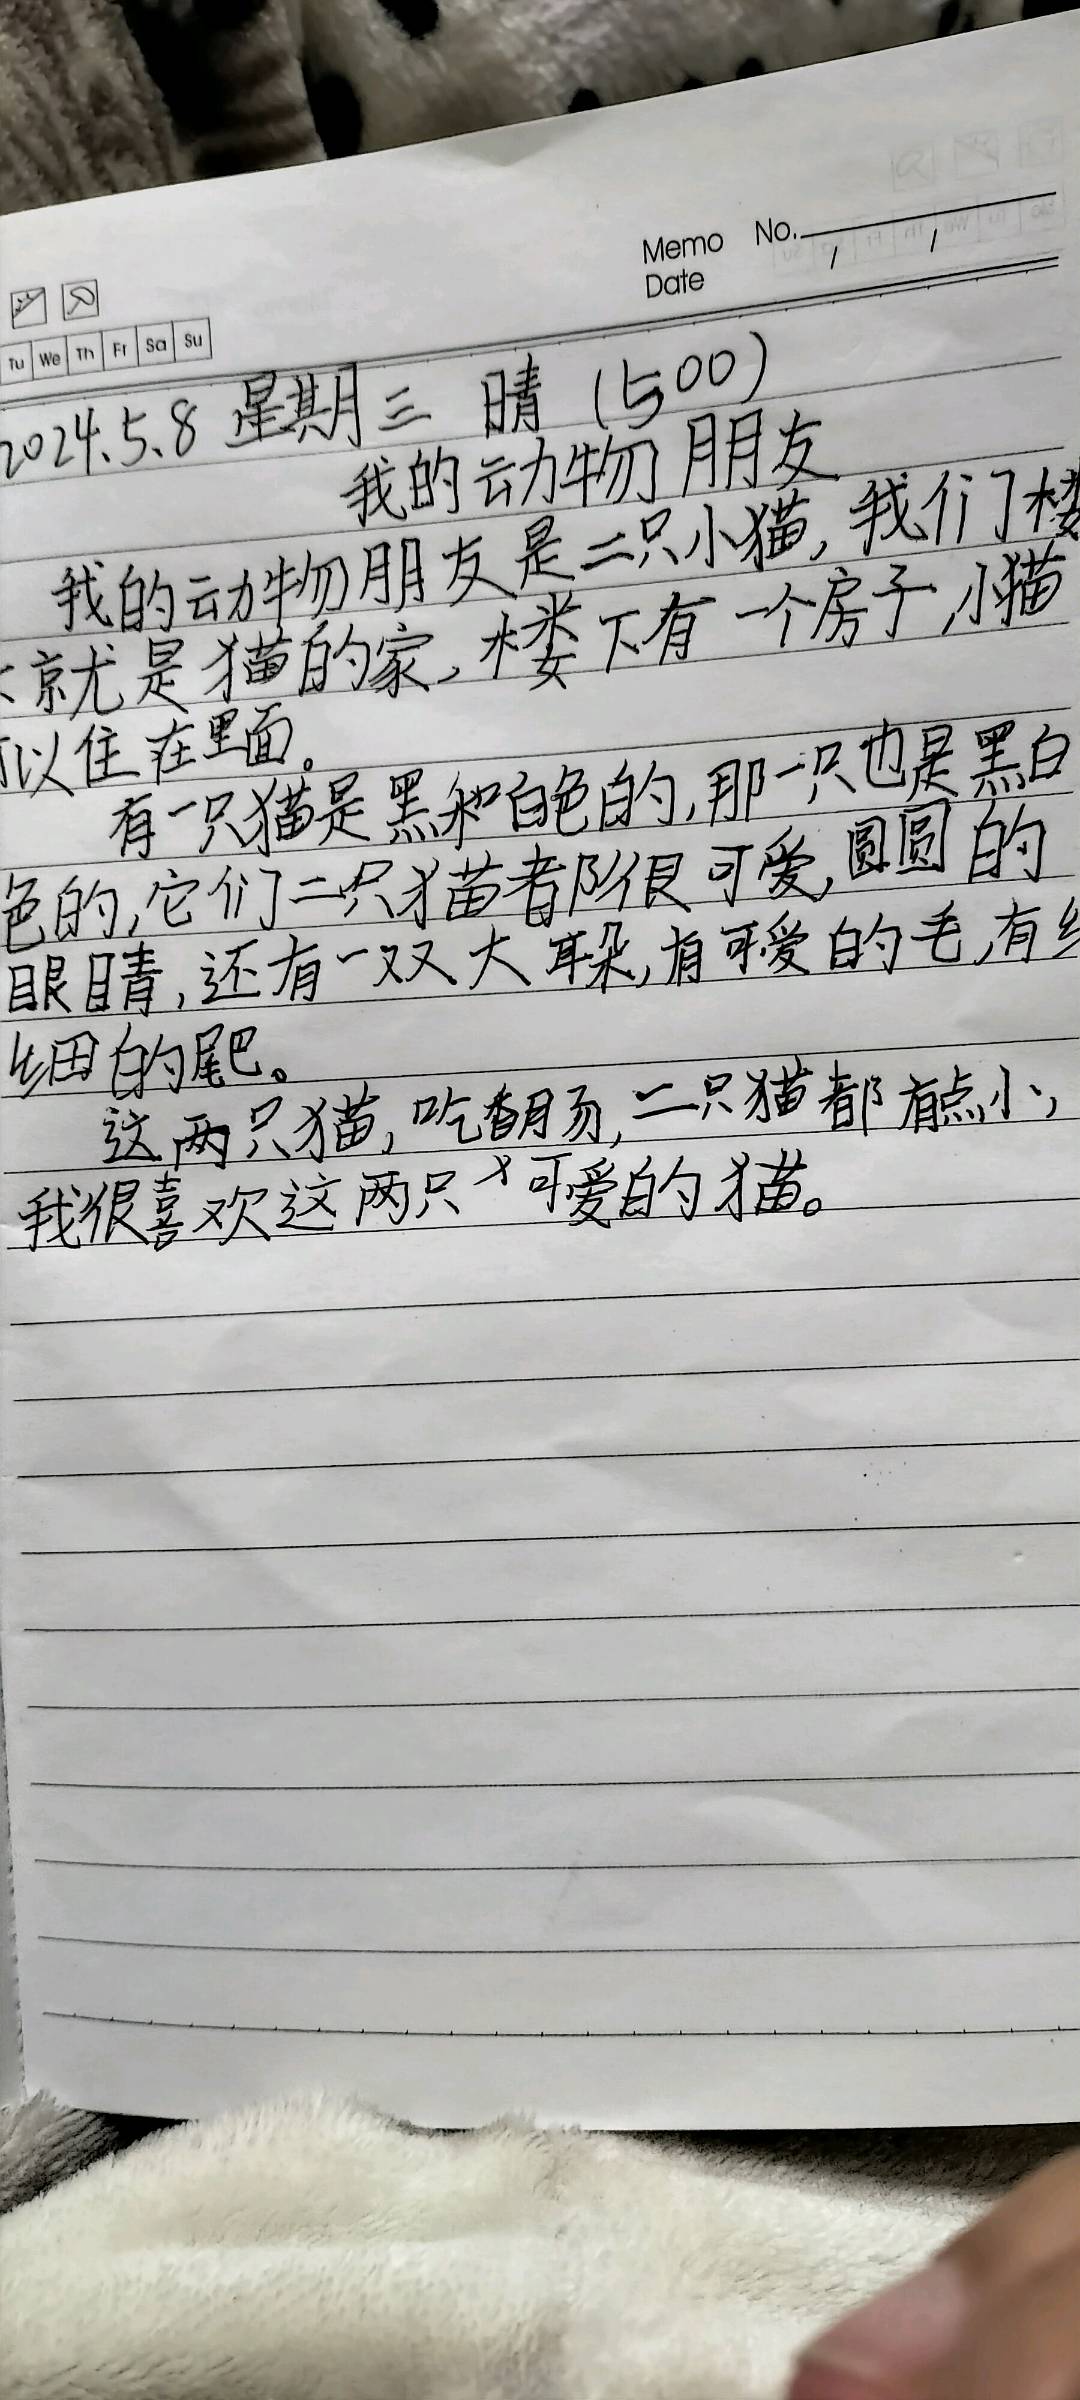 Memo No.
Date
Tu We Th Fr Sa Su
2024.5.8 星期三 晴 (500)
我的动物朋友
我的动物朋友是二只小猫,我们楼
就是猫的家,楼下有一个房子,小猫
以住在里面。
有一只猫是黑和白色的,那一只也是黑白
色的,它们二只猫都很可爱,圆圆的
眼睛,还有一双大耳朵,有可爱的毛,有
细的尾巴。
这两只猫,吃香肠,二只猫都有点小,
我很喜欢这两只可爱的猫。